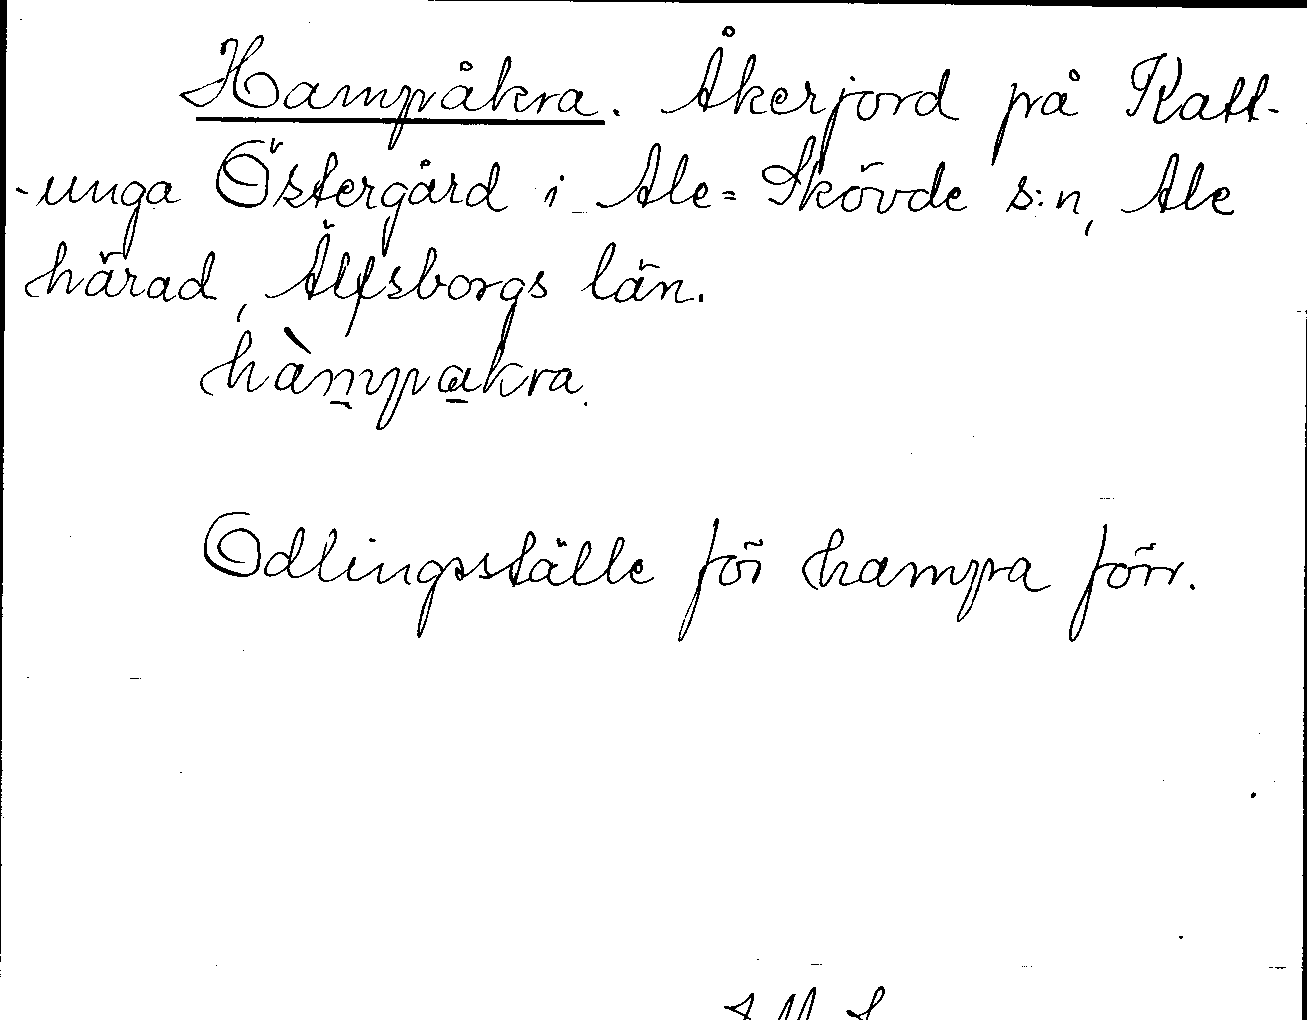 Hampåkra. Åkerjord på Katt-
-unga Östergård i Ale-Skövde s:n, Ale
härad, Älfsborgs län.
hàm̱pa̱kra.
Odlingsställe för hampa förr.